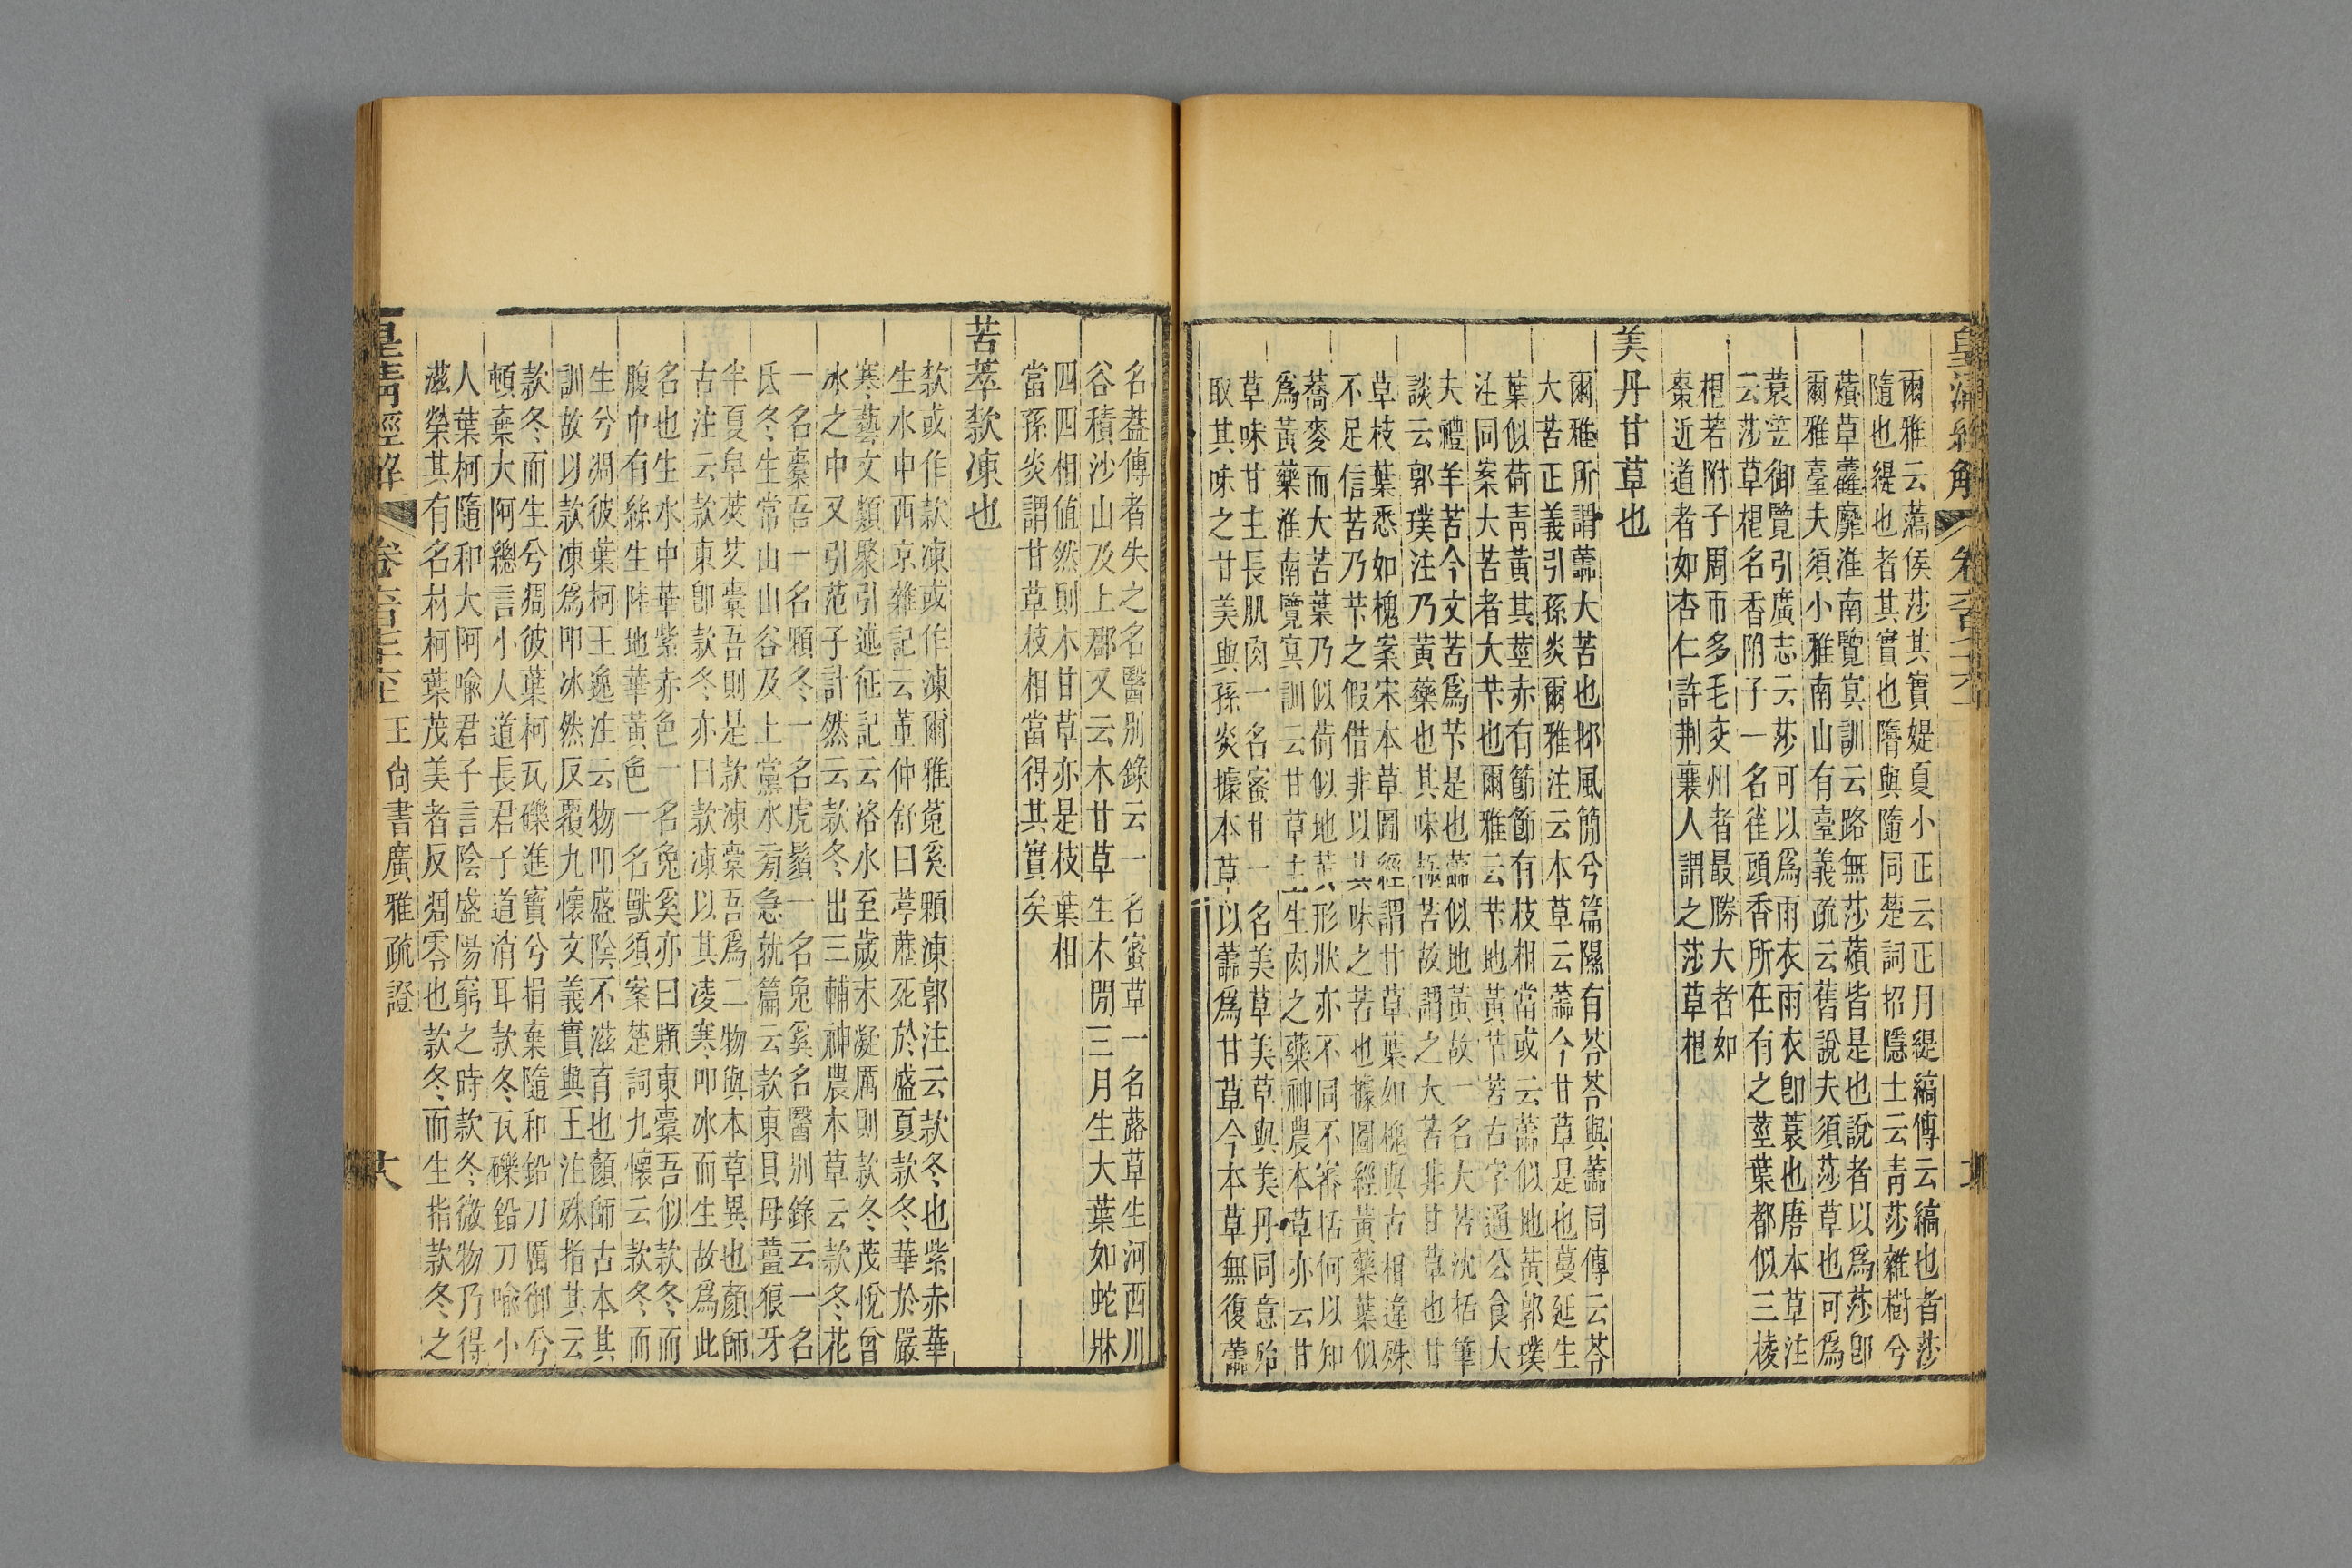 皇清經解
爾雅云薃侯莎其實媞夏小正云正月緹縞傳云縞也者莎
隨也緹也者其實也隋與隨同楚詞招隱士云靑莎雜樹兮
薠草蘿靡淮南覽冥訓云路無莎薠皆是也說者以爲莎卽
爾雅臺夫須小雅南山有臺義疏云舊說夫須莎草也可爲
蓑笠御覽引廣志云莎可以爲雨衣雨衣卽蓑也唐本草注
云莎草根名香附子一名雀頭香所在有之莖葉都似三棱
根若附子周帀多毛交州者最勝大者如
棗近道者如杏仁許荆襄人謂之莎草根
美丹甘草也
爾雅所謂蘦大苦也邶風簡兮篇隰有苓苓與蘦同傳云苓
大苦正義引孫炎爾雅注云本草云蘦今甘草是也蔓延生
葉似荷靑黃其莖赤有節節有枝相當或云蘦似地黃郭璞
注同案大苦者大苄也爾雅云苄地黃苄苦古字通公食大
夫禮羊苦今文苦爲苄是也蘦似地黃故一名大苦沈括筆
談云郭璞注乃黃藥也其味極苦故謂之大苦非甘草也甘
草枝葉悉如槐案宋本草圖經謂甘草葉如槐與古相違殊
不足信苦乃苄之假借非以其味之苦也據圖經黃藥葉似
蕎麥而大苦葉乃似荷似地黃形狀亦不同不審括何以知
爲黃藥淮南覽冥訓云甘草主生肉之藥神農本草亦云甘
草味甘主長肌肉一名蜜甘一名美草美草與美丹同意殆
取其味之甘美與孫炎據本草以蘦爲甘草今本草無復蘦
名葢傳者失之名醫別錄云一名蜜草一名蕗草生河西川
谷積沙山及上郡又云木甘草生木閒三月生大葉如蛇牀
四四相値然則木甘草亦是枝葉相
當孫炎謂甘草枝相當得其實矣
苦萃款凍也
款或作款凍或作涷爾雅菟奚顆凍郭注云款冬也紫赤華
生水中西京雜記云董仲舒曰葶藶死於盛夏款冬華於嚴
寒藝文類聚引述征記云洛水至歲末凝厲則款冬茂悅曾
冰之中又引范子計然云款冬出三輔神農本草云款冬花
一名橐吾一名顆冬一名虎鬚一名兔奚名醫別錄云一名
氐冬生常山山谷及上黨水旁急就篇云款東貝母薑狼牙
半夏皁莢艾橐吾則是款凍橐吾爲二物與本草異也顏師
古注云款東卽款冬亦曰款凍以其凌寒叩冰而生故爲此
名也生水中華紫赤色一名兔奚亦曰顆東橐吾似款冬而
腹中有絲生陸地華黃色一名獸須案楚詞九懷云款冬而
生兮凋彼葉柯王逸注云物叩盛陰不滋育也顏師古本其
訓故以款凍爲叩冰然反覆九懷文義實與王注殊指其云
款冬而生兮凋彼葉柯瓦礫進寶兮捐棄隨和鉛刀厲御兮
頓棄大阿總言小人道長君子道消耳款冬瓦礫鉛刀喩小
人葉柯隨和大阿喩君子言陰盛陽窮之時款冬微物乃得
滋榮其有名材柯葉茂美者反凋零也款冬而生指款冬之
皇淸經解
王尙書廣雅疏證